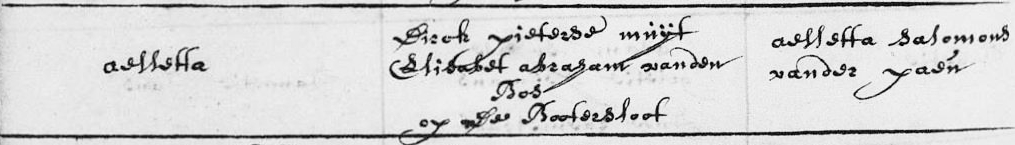 aelletta
Dirck pieterse muijt
Elisabet abraham vanden
Bos
op de Bootersloot
aelletta Salomons
vander paen